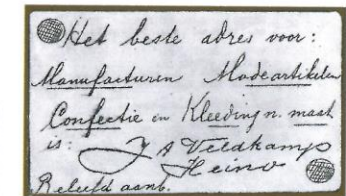 Het beste adres voor:
Manufacturen Modeartikelen
Confectie en Kleeding n. maat
is: J A Veldkamp
Heino
Beleefd aanb.